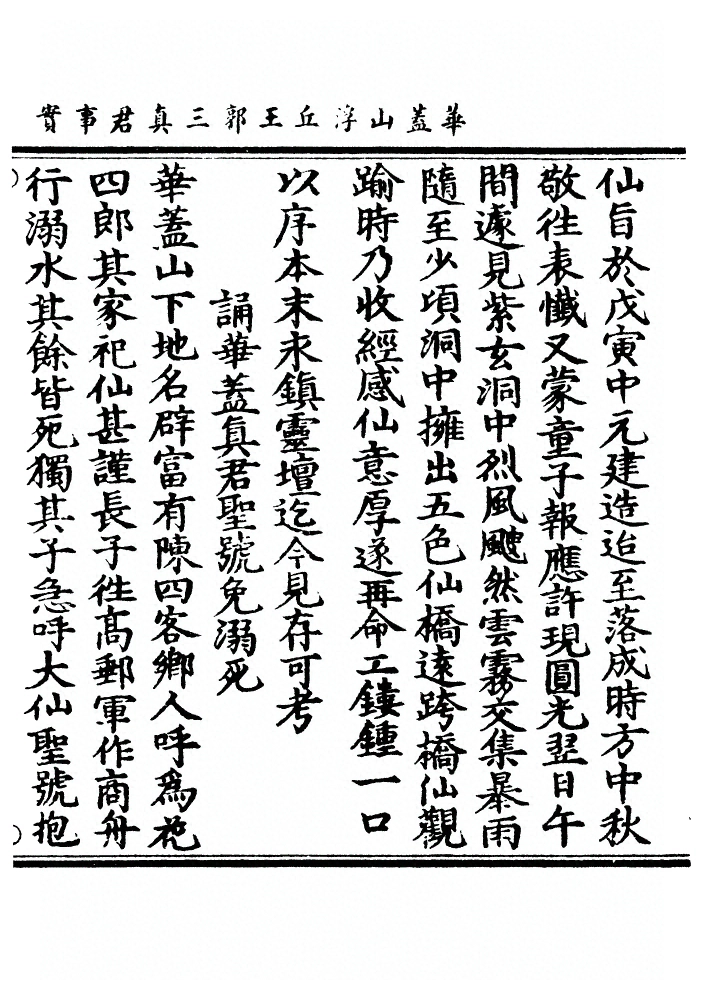 華蓋山浮丘王郭三真君事實
仙旨於戊寅中元建造迨至落成時方中秋
敬往表懴又蒙童子報應許現圓光翌日午
間遽見紫玄洞中烈風颷然雲霧交集暴雨
隨至少頃洞中擁出五色仙橋遠跨橋仙觀
踰時乃收經感仙意厚遂再命工鏤鍾一口
以序本末永鎮靈壇迄今見存可考
誦華蓋真君聖號免溺死
華蓋山下地名辟富有陳四客鄉人呼爲花
四郎其家祀仙甚謹長子徃髙郵軍作商舟
行溺水其餘皆死獨其子急呼大仙聖號抱